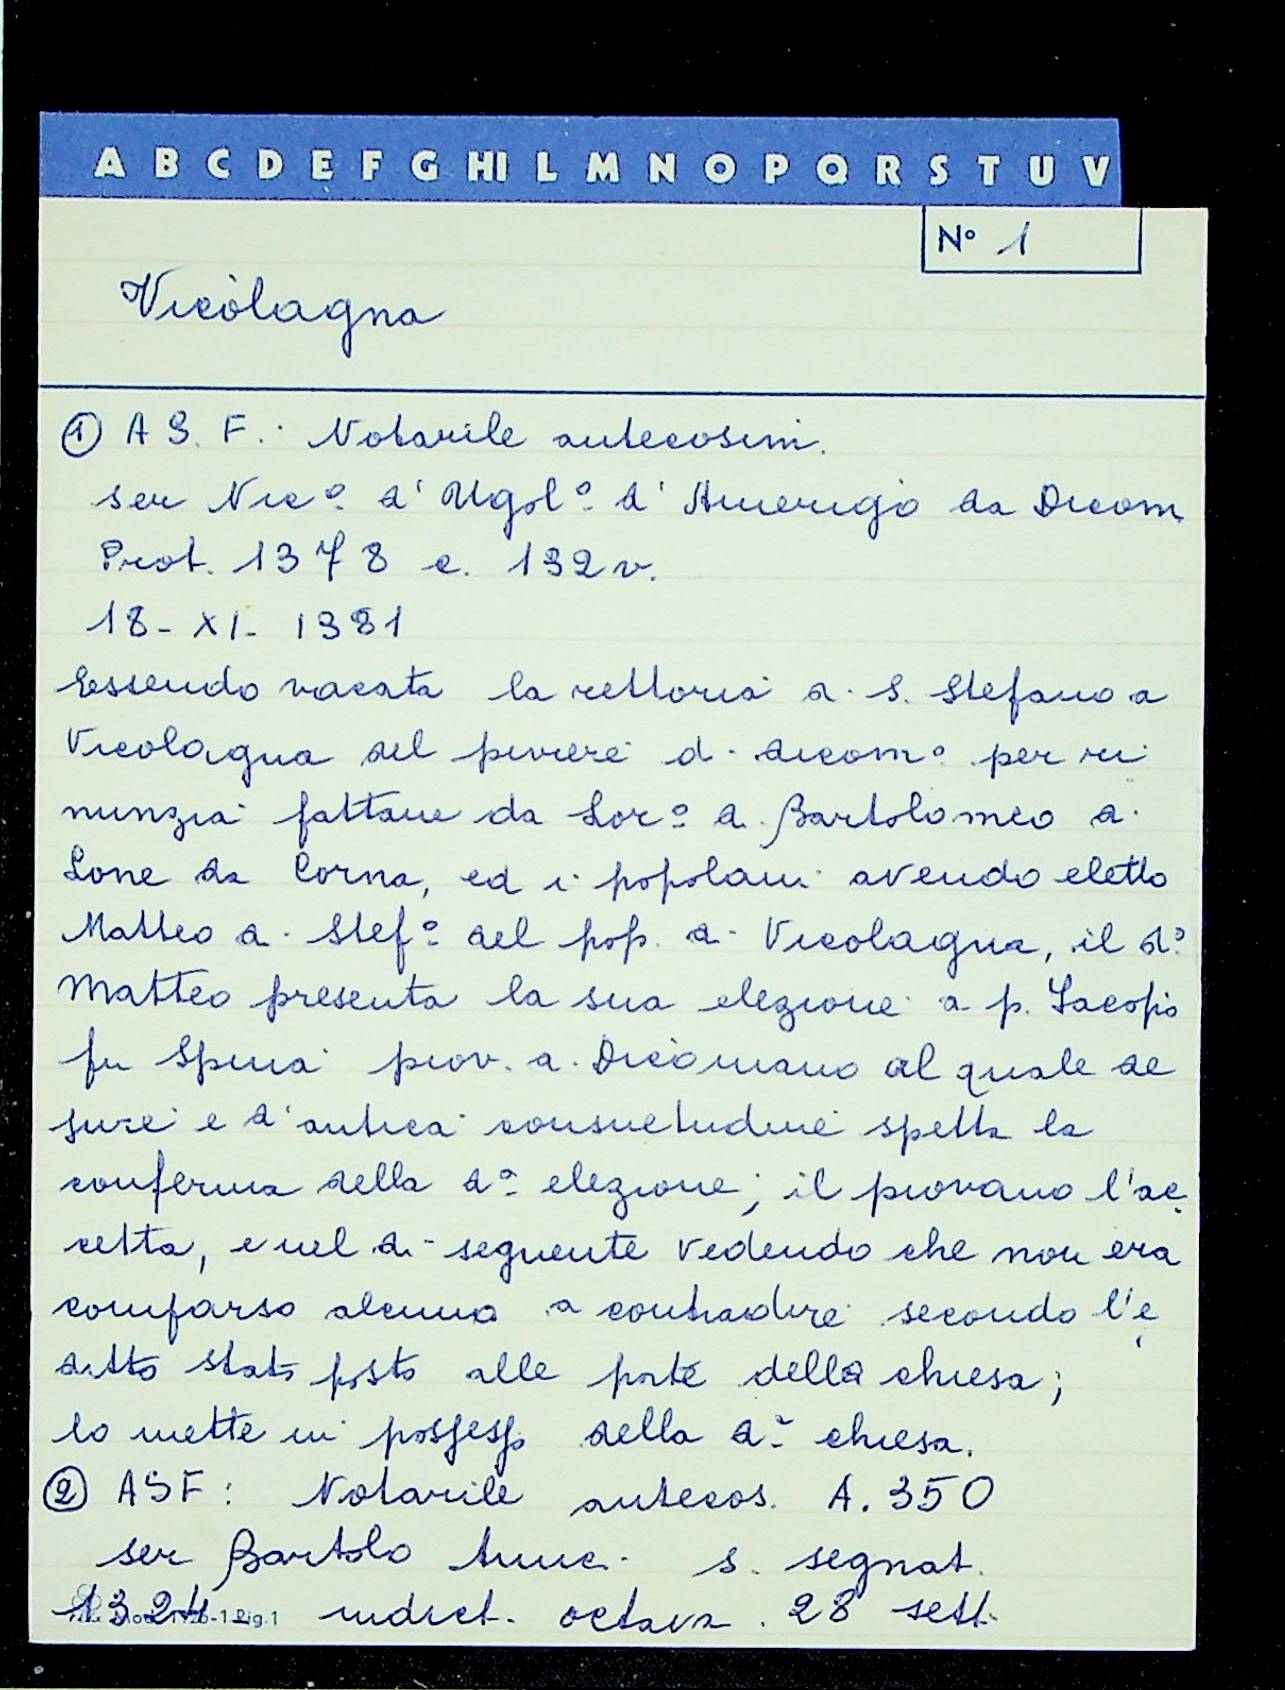 A B C D E F G HI L M N O P Q R S T U V
N° 1
Vicolagna
① A S. F. Notarile antecosim.
ser Nic° d' Ugol° d' Amerigo da Dicom
Prot. 1378 c. 132 v.
18 - XI - 1381
Essendo vacata la rettoria di S. Stefano a
Vicolagna del piviere di dicom° per ri
nunzia fattane da Lor° di Bartolomeo di
Lone da Corna, ed i popolani avendo eletto
Matteo di Stef° del pop. di Vicolagna, il d°
Matteo presenta la sua elezione a p. Jacopo
fu Spina piov. di Dicomano al quale de
jure e d'antica consuetudine spetta la
conferma della da elezione; il piovano l'ac
cetta, e nel dì seguente vedendo che non era
comparso alcuno a contradire secondo l'e
ditto stato posto alle porte della chiesa;
lo mette in possesso della da chiesa.
② ASF: Notarile antecos. A. 350
ser Bartolo s. segnat.
1324 indict. octava. 28 sett.